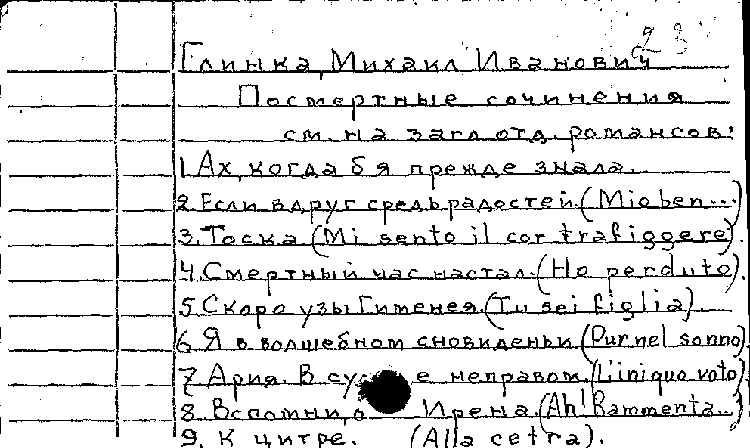 23
Глинка, Михаил Иванович
Посмертные сочинения
см. на загл. отд. романсов:
1. Ах, когда б я прежде знала.
2. Если вдруг средь радостей. (Mio ben...)
3. Тоска (Mi sento il cor trafiggere).
4. Смертный час настал. (Ho perduto).
5. Скоро узы Гименея. (Tu sei figlia).
6. Я в волшебном сновиденьи. (Pur nel sonno)
7. Ария. В неправом. (L'iniquo voto)
8. Вспомни, о Ирена. (Ah! Rammenta...)
9. К цитре. (Alla cetra).